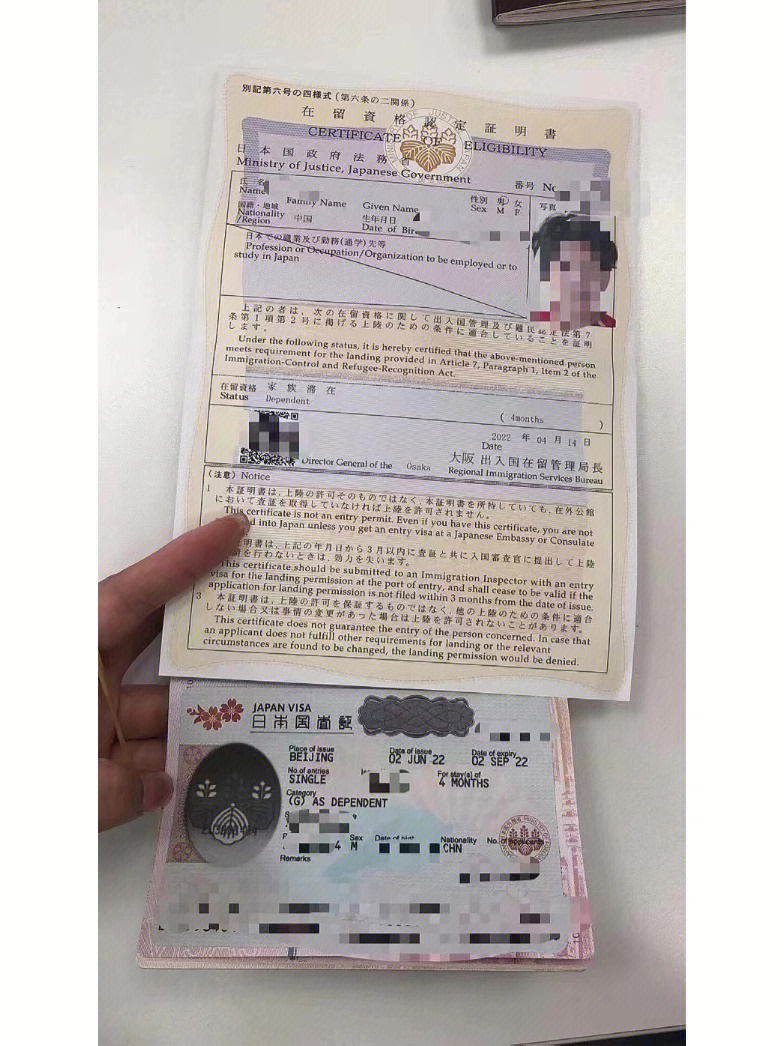 別記第六号の四様式(第六条の二関係)
在留資格認定証明書
CERTIFICATE OF ELIGIBILITY
日本国政府法務省
Ministry of Justice, Japanese Government
番号 No
氏名
Name
Family Name Given Name
性別 男 女
Sex M F
写真
国籍・地域 中国
Nationality
/Region
生年月日
Date of Bir
日本での職業及び勤務(通学)先等
Profession or Occupation/Organization to be employed or to
study in Japan
上記の者は、次の在留資格に関して出入国管理及び難民認定法第7
条第1項第2号に掲げる上陸のための条件に適合していることを証明
します。
Under the following status, it is hereby certified that the above-mentioned person
meets requirement for the landing provided in Article 7, Paragraph 1, Item 2 of the
Immigration-Control and Refugee-Recognition Act.
在留資格 家族滞在
Status Dependent
( 4months )
2022 年 04 月 14 日
Date
大阪 出入国在留管理局長
Director General of the Osaka Regional Immigration Services Bureau
(注意) Notice
1 本証明書は、上陸の許可そのものではなく、本証明書を所持していても、在外公館
において査証を取得していなければ上陸を許可されません。
This certificate is not an entry permit. Even if you have this certificate, you are not
d into Japan unless you get an entry visa at a Japanese Embassy or Consulate
証明書は、上記の年月日から3月以内に査証と共に入国審査官に提出して上陸
を行わないときは、効力を失います。
This certificate should be submitted to an Immigration Inspector with an entry
visa for the landing permission at the port of entry, and shall cease to be valid if the
application for landing permission is not filed within 3 months from the date of issue.
3 本証明書は、上陸の許可を保証するものではなく、他の上陸のための条件に適合
しない場合又は事情の変更があった場合は上陸を許可されないことがあります。
This certificate does not guarantee the entry of the person concerned. In case that
an applicant does not fulfill other requirements for landing or the relevant
circumstances are found to be changed, the landing permission would be denied.
JAPAN VISA
日本国査証
Place of issue Date of issue Date of expiry
BEIJING 02 JUN 22 02 SEP 22
No. of entries For stay(s) of
SINGLE 4 MONTHS
Category
(G) AS DEPENDENT
Sex Date of birth Nationality No. of applicants
4 M CHN
Remarks